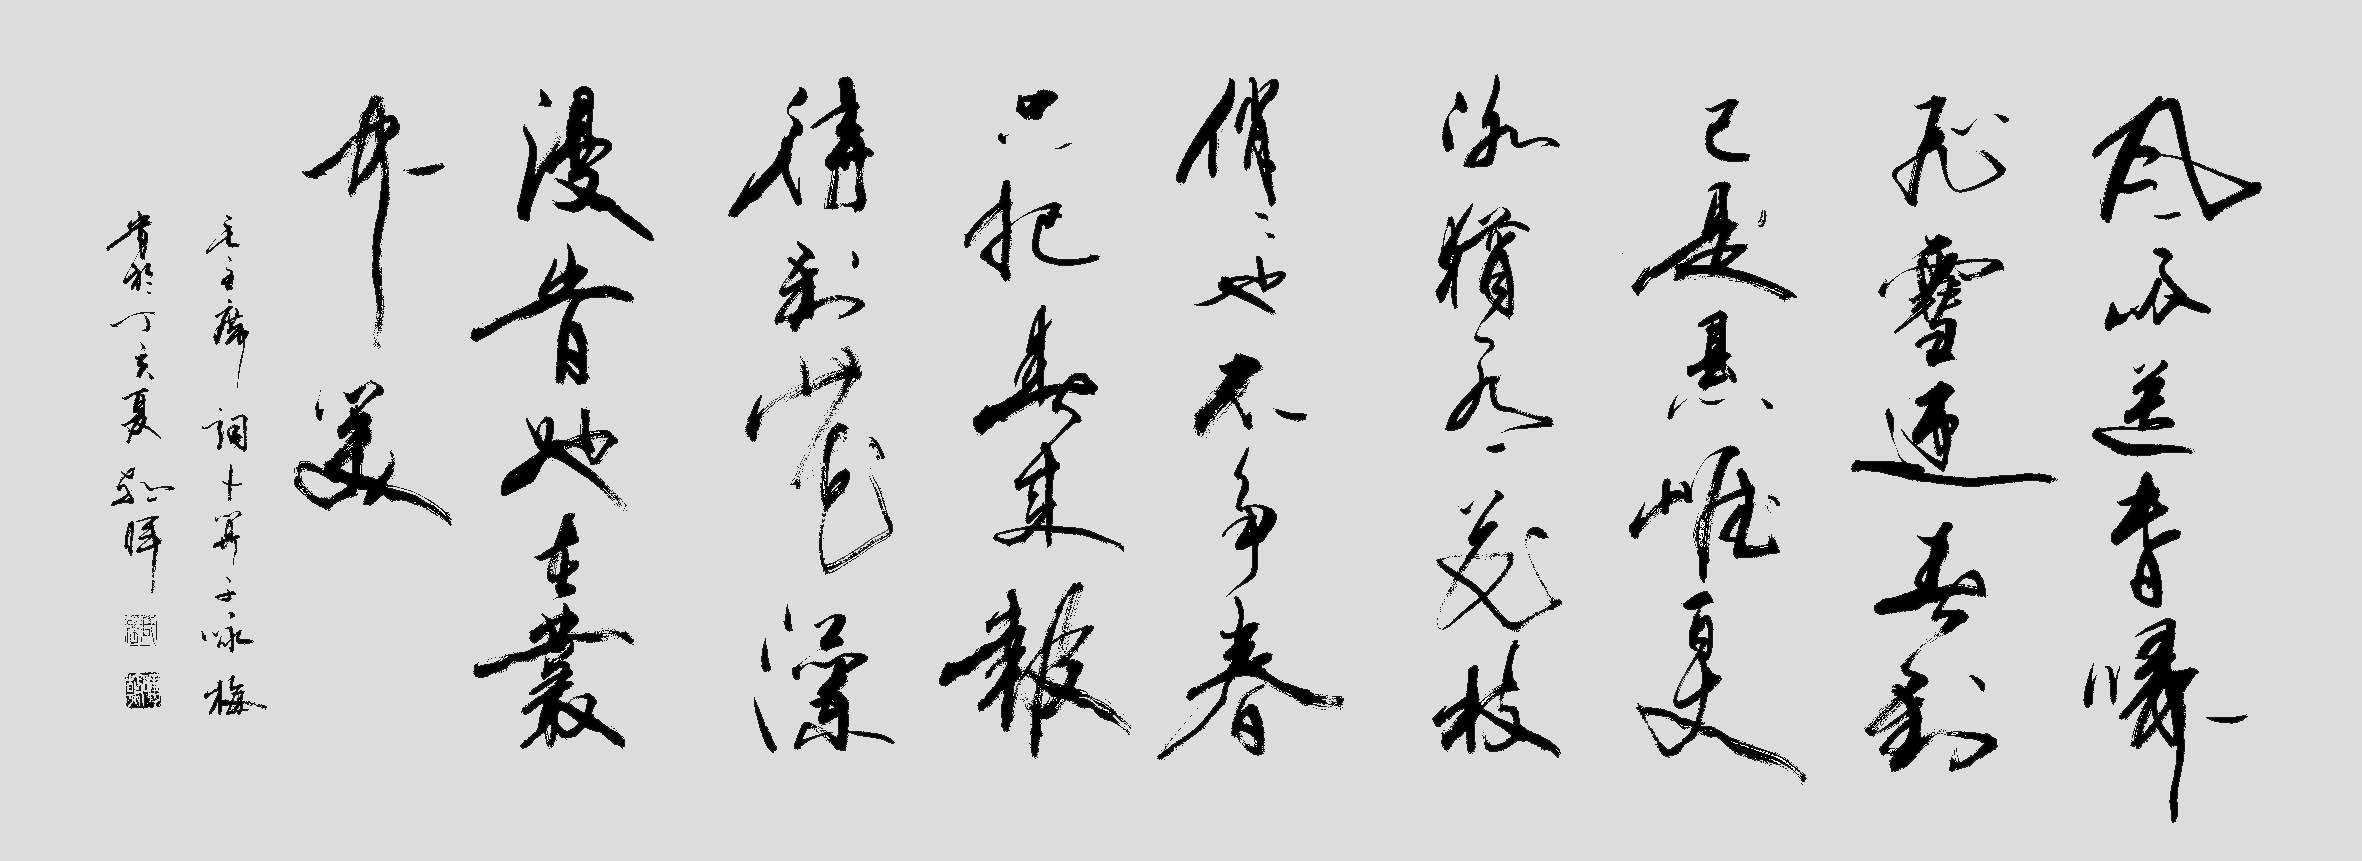 风雨送春归
飞雪迎春到
已是悬崖百丈
冰猶有花枝
俏〻也不争春
只把春来報
待到山花烂
漫時她在叢
中笑
毛主席词卜算子咏梅
书於丁亥夏